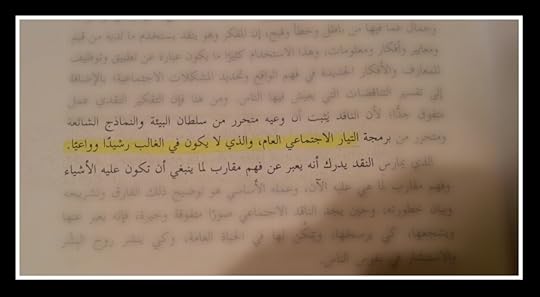 وجمال عما فيها من باطل وخطأ وقبح، إن المفكر وهو ينقد يستخدم ما لديه من قيم
ومعايير وأفكار ومعلومات، وهذا الاستخدام كثيرًا ما يكون عبارة عن تطبيق وتوظيف
للمعارف والأفكار الجديدة في فهم الواقع وتحديد المشكلات الاجتماعية، بالإضافة
إلى تفسير التناقضات التي يعيش فيها الناس. ومن هنا فإن التفكير النقدي عمل
متفوق جدًّا؛ لأن الناقد يُثبت أن وعيه متحرر من سلطان البيئة والنماذج الشائعة
ومتحرر من برمجة التيار الاجتماعي العام، والذي لا يكون في الغالب رشيدًا وواعيًا.
الذي يمارس النقد يدرك أنه يعبر عن فهم مقارب لما ينبغي أن تكون عليه الأشياء
وفهم مقارب لما هي عليه الآن، وعمله الأساسي هو توضيح ذلك الفارق وتشريحه
وبيان خطورته، وحين يجد الناقد الاجتماعي صورًا متفوقة وخيرة، فإنه يعبر عنها
ويشجعها، كي يرسخها، ويمكّن لها في الحياة العامة، وكي ينشر روح البِشْر
والاستبشار في نفوس الناس.